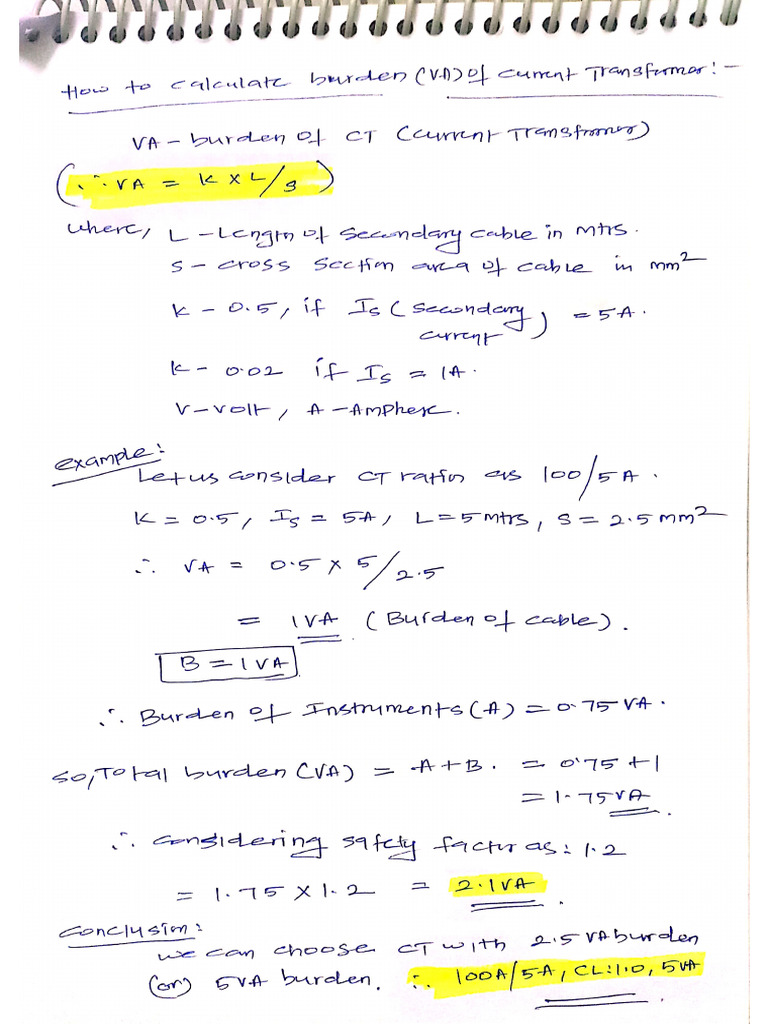 How to calculate burden (VA) of current Transformer:-
VA - burden of CT (current Transfromer)
(∴ VA = K x L/s)
where, L - Length of secondary cable in mtrs.
S - cross section area of cable in mm²
K - 0.5, if Is (secondary current) = 5A.
K - 0.02 if Is = 1A.
V - volt, A - Amphere.
example:
Let us consider CT ratio as 100/5A.
K = 0.5, Is = 5A, L = 5 mtrs, S = 2.5 mm²
∴ VA = 0.5 x 5/2.5
= 1VA (Burden of cable).
B = 1VA
∴ Burden of Instruments (A) = 0.75 VA.
So, Total burden (VA) = A + B. = 0.75 + 1
= 1.75VA.
∴ considering safety factor as: 1.2
= 1.75 x 1.2 = 2.1VA.
conclusion:
we can choose CT with 2.5 VA burden
(or) 5VA burden. ∴ 100A/5A, CL:1.0, 5VA.